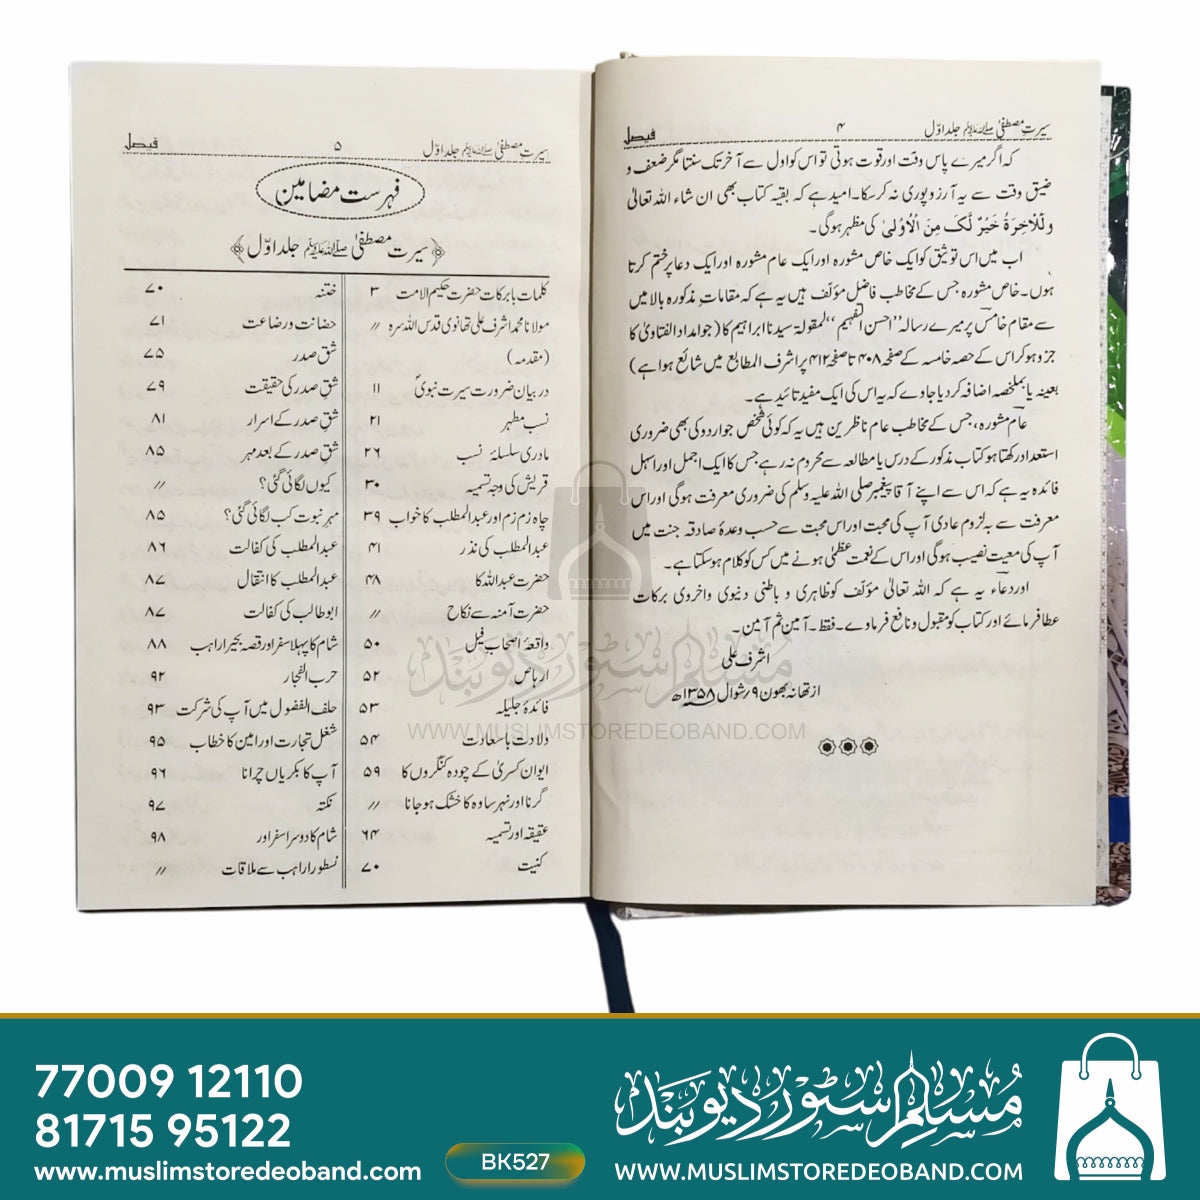 سیرتِ مصطفیٰ ﷺ جلد اوّل ۴ فیصل
کہ اگر میرے پاس وقت اور قوت ہوتی تو اس کو اول سے آخر تک سنتا مگر ضعف و
ضیق وقت سے یہ آرزو پوری نہ کرسکا۔ امید ہے کہ بقیہ کتاب بھی ان شاء اللہ تعالیٰ
وَلَلْاٰخِرَةُ خَيْرٌ لَّكَ مِنَ الْاُوْلٰى کی مظہر ہوگی۔
اب میں اس توثیق کو ایک خاص مشورہ اور ایک عام مشورہ اور ایک دعا پر ختم کرتا
ہوں۔ خاص مشورہ، جس کے مخاطب فاضل مؤلف ہیں یہ ہے کہ مقاماتِ مذکورہ بالا میں
سے مقام خامس پر میرے رسالہ "احسن التفہیم" لمقولۃ سیدنا ابراہیم کا (جو امداد الفتاویٰ کا
جزو ہوکر اس کے حصہ خامسہ کے صفحہ ۴۰۸ تا صفحہ ۴۱۲ پر اشرف المطابع میں شائع ہوا ہے)
بعینہ یا بملخصہ اضافہ کردیا جاوے کہ یہ اس کی ایک مفید تائید ہے۔
عام مشورہ، جس کے مخاطب عام ناظرین ہیں یہ کہ کوئی شخص جو اردو کی بھی ضروری
استعداد رکھتا ہو کتاب مذکور کے درس یا مطالعہ سے محروم نہ رہے جس کا ایک اجمل اور اسہل
فائدہ یہ ہے کہ اس سے اپنے آقا پیغمبر صلی اللہ علیہ وسلم کی ضروری معرفت ہوگی اور اس
معرفت سے بہ لزوم عادی آپ کی محبت اور اس محبت سے حسب وعدۂ صادقہ جنت میں
آپ کی معیت نصیب ہوگی اور اس کے نعمت عظمٰی ہونے میں کس کو کلام ہوسکتا ہے۔
اور دعاء یہ ہے کہ اللہ تعالیٰ مؤلف کو ظاہری و باطنی دنیوی و اخروی برکات
عطا فرمائے اور کتاب کو مقبول و نافع فرماوے۔ فقط۔ آمین ثم آمین۔
اشرف علی
از تھانہ بھون ۹؍ شوال ۱۳۵۸ھ
سیرتِ مصطفیٰ ﷺ جلد اوّل ۵ فیصل
فہرست مضامین
سیرتِ مصطفیٰ ﷺ جلد اوّل
کلمات بابرکات حضرت حکیم الامت ۳
مولانا محمد اشرف علی تھانوی قدس اللہ سرہ 〃
(مقدمہ)
در بیان ضرورت سیرت نبویؐ ۱۱
نسب مطہر ۲۱
مادری سلسلۂ نسب ۲۶
قریش کی وجہ تسمیہ ۳۰
چاہ زم زم اور عبدالمطلب کا خواب ۳۹
عبدالمطلب کی نذر ۴۱
حضرت عبداللہ کا ۴۸
حضرت آمنہ سے نکاح 〃
واقعۂ اصحاب فیل ۵۰
ارہاص ۵۲
فائدۂ جلیلہ ۵۳
ولادت باسعادت ۵۴
ایوان کسریٰ کے چودہ کنگروں کا ۵۹
گرنا اور نہر ساوہ کا خشک ہوجانا 〃
عقیقہ اور تسمیہ ۶۴
کنیت ۷۰
ختنہ ۷۰
حضانت و رضاعت ۷۱
شق صدر ۷۵
شق صدر کی حقیقت ۷۹
شقِ صدر کے اسرار ۸۱
شقِ صدر کے بعد مہر ۸۵
کیوں لگائی گئی؟ 〃
مہر نبوت کب لگائی گئی؟ ۸۵
عبدالمطلب کی کفالت ۸۶
عبدالمطلب کا انتقال ۸۷
ابوطالب کی کفالت ۸۷
شام کا پہلا سفر اور قصہ بحیرا راہب ۸۸
حرب الفجار ۹۲
حلف الفضول میں آپ کی شرکت ۹۳
شغل تجارت اور امین کا خطاب ۹۵
آپ کا بکریاں چرانا ۹۶
نکتہ ۹۷
شام کا دوسرا سفر اور ۹۸
نسطورا راہب سے ملاقات 〃
مسلم سٹور دیوبند
WWW.MUSLIMSTOREDEOBAND.COM
77009 12110
81715 95122
www.muslimstoredeoband.com
BK527
مسلم سٹور دیوبند
WWW.MUSLIMSTOREDEOBAND.COM